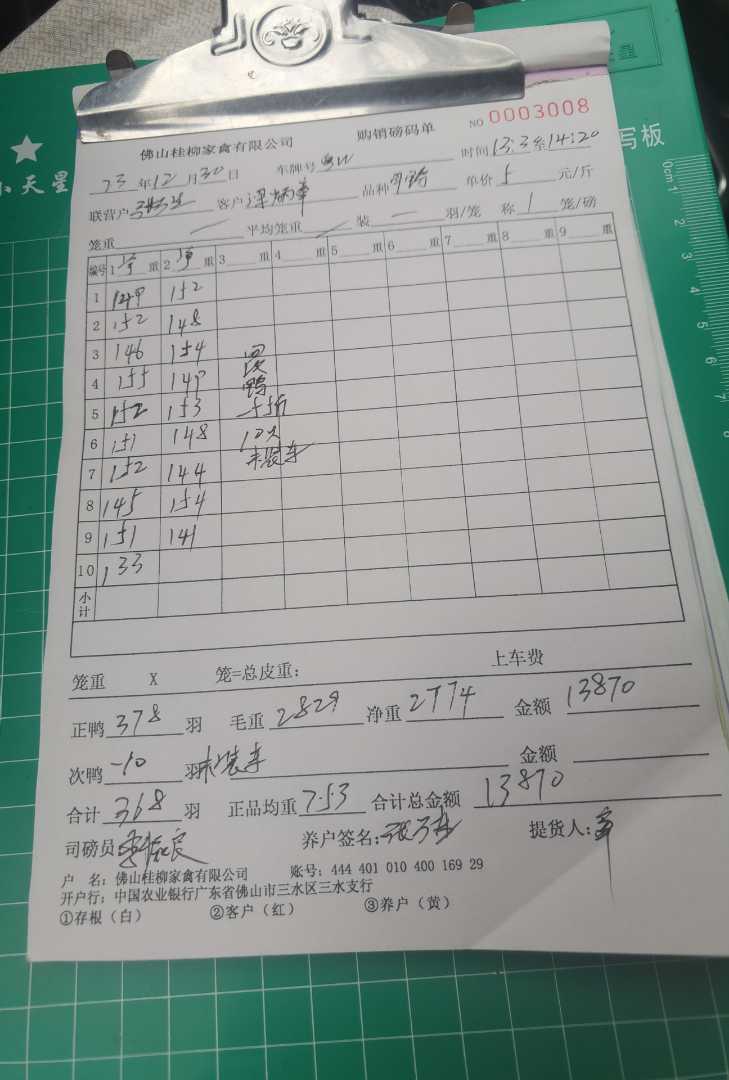 NO 0003008
佛山桂柳家禽有限公司 购销磅码单
写板
小天星
23 年 12 月 30 日 车牌号 时间 13:3 至 14:20
联营户 客户 品种 单价 5 元/斤
笼重 平均笼重 装 一 羽/笼 称 1 笼/磅
编号 1 重 2 重 3 重 4 重 5 重 6 重 7 重 8 重 9 重
1 149 152
2 152 148
3 146 154
4 155 149
5 152 153
6 151 148
7 152 144
8 145 154
9 151 141
10 133
鸭
10只
未装车
小计
笼重 X 笼=总皮重: 上车费
正鸭 378 羽 毛重 2829 净重 2774 金额 13870
次鸭 -10 羽 未装车 金额
合计 368 羽 正品均重 7.53 合计总金额 13870
司磅员 养户签名: 提货人:
户 名: 佛山桂柳家禽有限公司 账号: 444 401 010 400 169 29
开户行: 中国农业银行广东省佛山市三水区三水支行
①存根（白） ②客户（红） ③养户（黄）
0cm 1 2 3 4 5 6 7 8